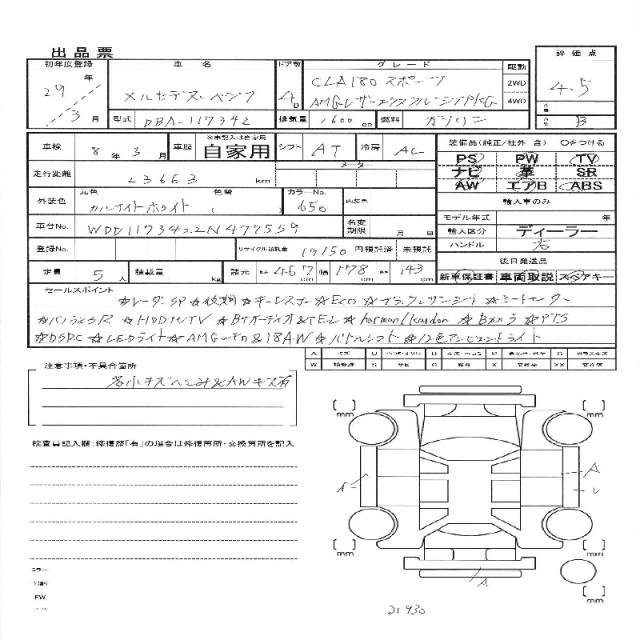 出品票
初年度登録 車名 ドア数 グレード 駆動 評価点
29年 メルセデス・ベンツ 4D CLA180 スポーツ 2WD 4.5
3月 型式 DBA-117342 AMGレザーエクスクルーシブPKG 4WD
排気量 1600cc 燃料 ガソリン B
車検 8年3月 車歴 ※未記入は自家用 自家用 シフト AT 冷房 AC 装備品(純正/社外 含) ○をつける
走行距離 23663 km メーター PS PW TV
ナビ 革 SR
AW エアB ABS
外装色 色品 カルサイトホワイト 色替 カラーNo. 650 内装色 輸入車のみ
車台No. WDD1173422N477559 名変期限 月 日 モデル年式 年
輸入区分 ディーラー
登録No. リサイクル預託金 17150 円 預託済 未預託 ハンドル 右
後日発送品
定員 5人 積載量 kg 諸元 467 幅 178 高 143 cm 新車保証書 車両取説 スペアキー
セールスポイント
☆レーダーSP ☆後期 ☆キーレスゴー ☆Eco ☆ブラックレザーシート ☆シートヒーター
☆パノラマSR ☆HDDナビTV ☆BTオーディオ&TEL ☆harman/kardon ☆Bカメラ ☆PTS
☆DSRC ☆LEDライト ☆AMGエアロ&18AW ☆パドルシフト ☆12色アンビエントライト
注意事項・不具合箇所
各小キズヘこみ&AWキズ有
検査員記入欄:修復歴「有」の場合は修復箇所・交換箇所を記入
mm mm
A A
mm mm
A
mm
21930